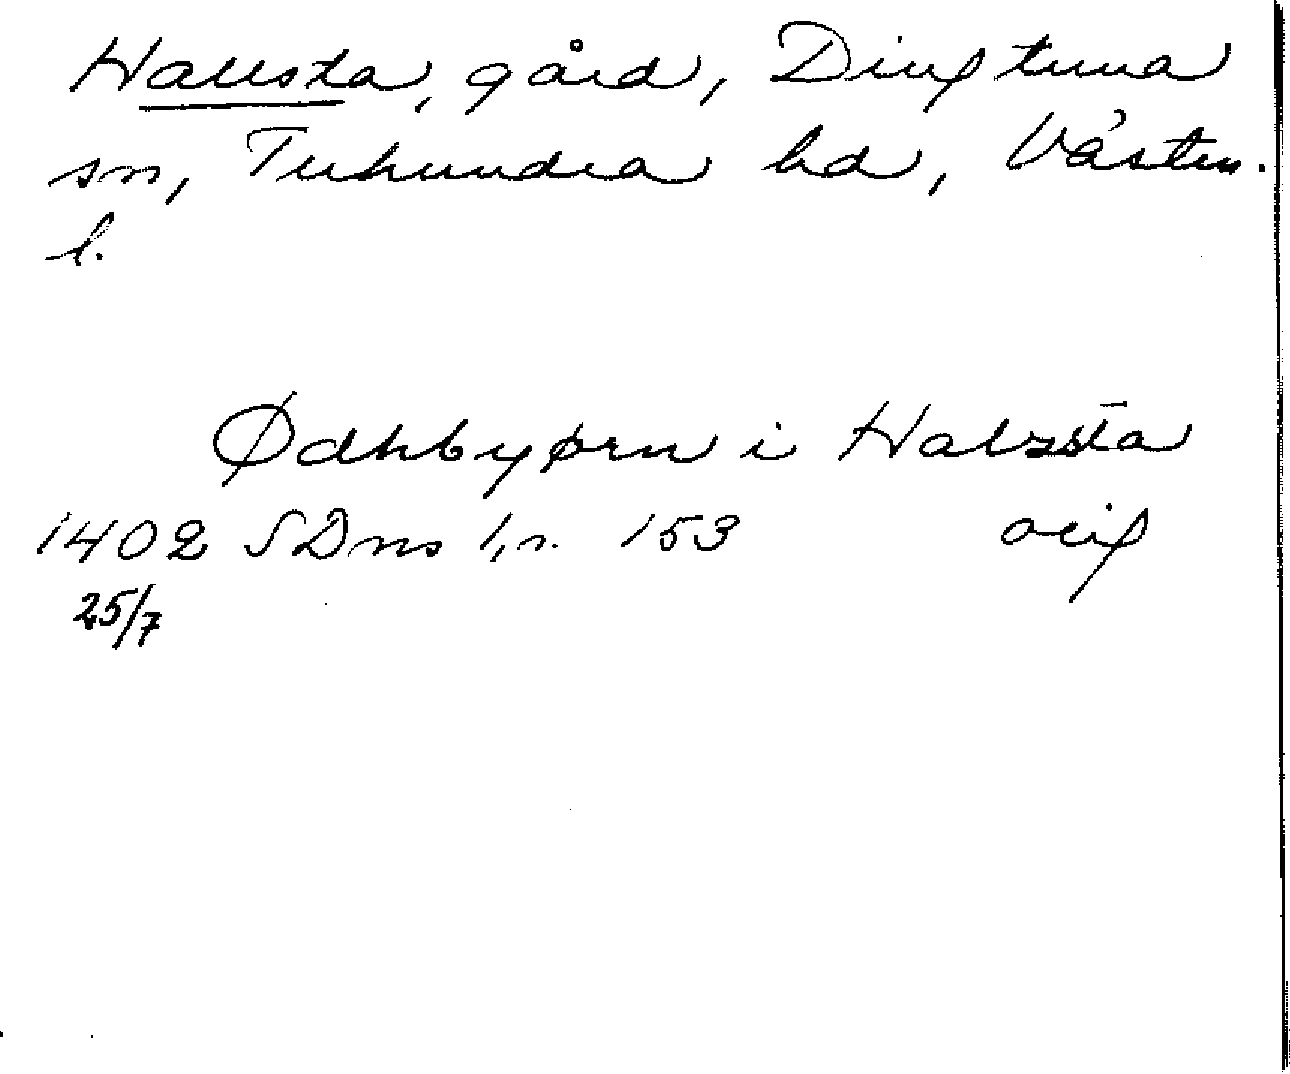 Hallsta, gård, Dingtuna
sn, Tuhundra hd, Västm.
l.
Ødhbyørn i Halzsta
1402 SDns 1, s. 153 orig
25/7